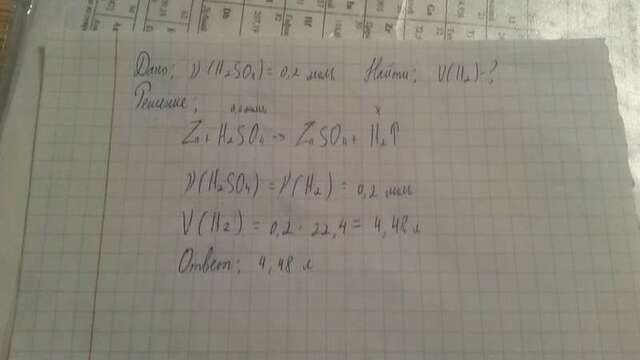 Дано: ν(H₂SO₄) = 0,2 моль Найти: V(H₂)-?
Решение:
0,2 моль x
Zn + H₂SO₄ → ZnSO₄ + H₂↑
ν(H₂SO₄) = ν(H₂) = 0,2 моль
V(H₂) = 0,2 · 22,4 = 4,48 л
Ответ: 4,48 л